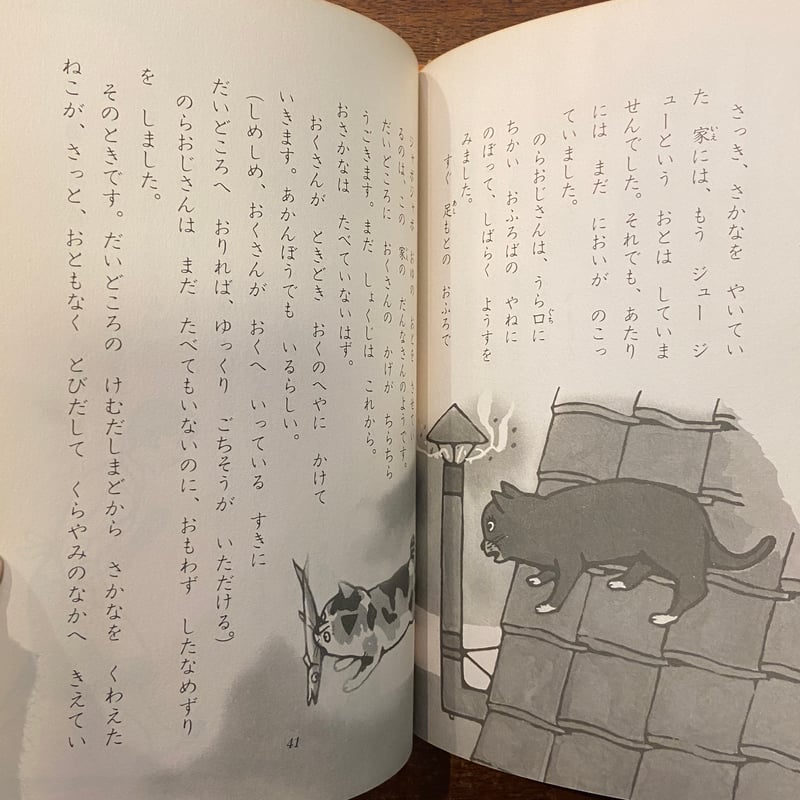 さっき、さかなを やいてい
た 家には、もう ジュージ
ューという おとは していま
せんでした。それでも、あたり
には まだ においが のこっ
ていました。
のらおじさんは、うら口に
ちかい おふろばの やねに
のぼって、しばらく ようすを
みました。
すぐ 足もとの おふろで
ジャボジャボ おゆの おとを させてい
るのは、この 家の だんなさんのようです。
だいどころに おくさんの かげが ちらちら
うごきます。まだ しょくじは これから。
おさかなは たべていないはず。
おくさんが ときどき おくのへやに かけて
いきます。あかんぼうでも いるらしい。
(しめしめ、おくさんが おくへ いっている すきに
だいどころへ おりれば、ゆっくり ごちそうが いただける。)
のらおじさんは まだ たべてもいないのに、おもわず したなめずり
を しました。
そのときです。だいどころの けむだしまどから さかなを くわえた
ねこが、さっと、おともなく とびだして くらやみのなかへ きえてい
41